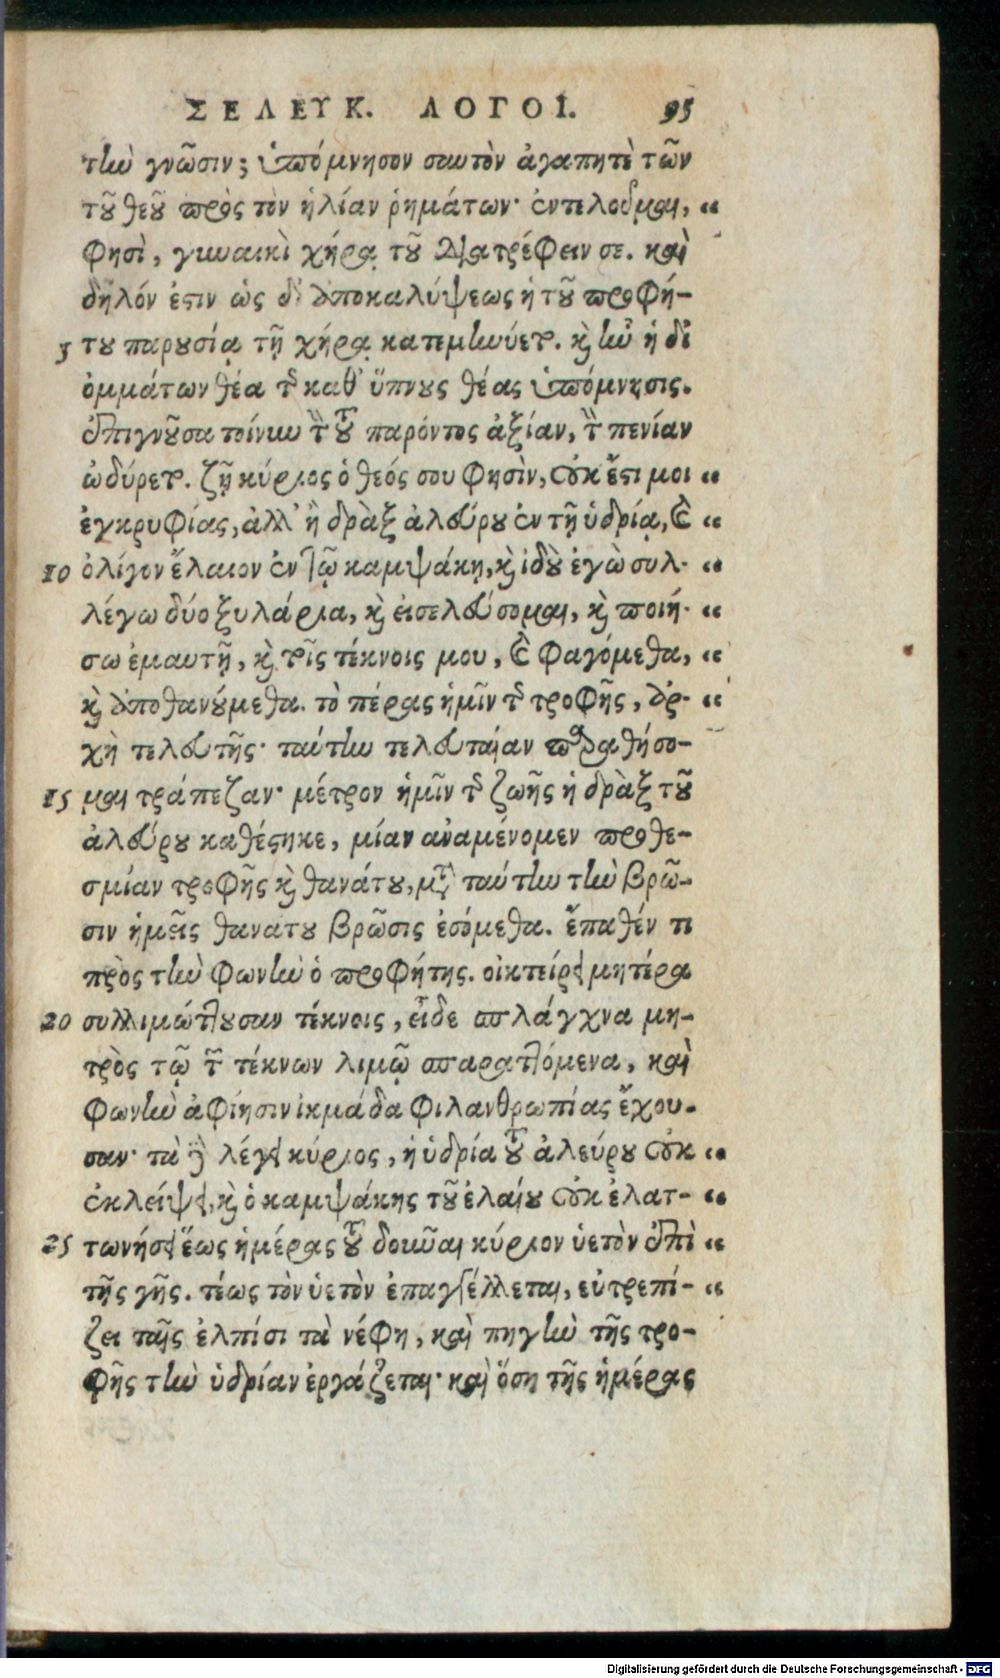 ΣΕΛΕΥΚ. ΛΟΓΟΙ. 95
τὴν γνῶσιν; ὑπόμνησον σαυτὸν ἀγαπητὲ τῶν
τοῦ θεοῦ πρὸς τὸν ἠλίαν ῥημάτων· ἐντελοῦμαι, “
φησὶ, γυναικὶ χήρᾳ τοῦ διατρέφειν σε. καὶ
δῆλόν ἐστιν ὡς δι' ἀποκαλύψεως ἡ τοῦ προφή-
5 του παρουσίᾳ τῇ χήρᾳ κατεμηνύετο. καὶ ἦν ἡ δι'
ὀμμάτων θέα τῆς καθ' ὕπνους θέας ὑπόμνησις.
ἐπιγνοῦσα τοίνυν τὴν τοῦ παρόντος ἀξίαν, τὴν πενίαν
ὠδύρετο. ζῇ κύριος ὁ θεός σου φησὶν, οὐκ ἔστι μοι “
ἐγκρυφίας, ἀλλ' ἢ δρὰξ ἀλεύρου ἐν τῇ ὑδρίᾳ, καὶ “
10 ὀλίγον ἔλαιον ἐν τῷ καμψάκῃ, καὶ ἰδοὺ ἐγὼ συλ- “
λέγω δύο ξυλάρια, καὶ εἰσελεύσομαι, καὶ ποιή- “
σω ἐμαυτῇ, καὶ τοῖς τέκνοις μου, καὶ φαγόμεθα, “
καὶ ἀποθανούμεθα. τὸ πέρας ἡμῖν τῆς τροφῆς, ἀρ- “
χὴ τελευτῆς· ταύτην τελευταίαν παραθήσο-
15 μαι τράπεζαν· μέτρον ἡμῖν τῆς ζωῆς ἡ δρὰξ τοῦ
ἀλεύρου καθέστηκε, μίαν ἀναμένομεν προθε-
σμίαν τροφῆς καὶ θανάτου, μετὰ ταύτην τὴν βρῶ-
σιν ἡμεῖς θανάτου βρῶσις ἐσόμεθα. ἔπαθέν τι
πρὸς τὴν φωνὴν ὁ προφήτης. οἰκτείρει μητέρα
20 συλλιμώττουσαν τέκνοις, εἶδε σπλάγχνα μη-
τρὸς τῷ τῶν τέκνων λιμῷ σπαραττόμενα, καὶ
φωνὴν ἀφίησιν ἰκμάδα φιλανθρωπίας ἔχου-
σαν· τάδε λέγει κύριος, ἡ ὑδρία τοῦ ἀλεύρου οὐκ “
ἐκλείψει, καὶ ὁ καμψάκης τοῦ ἐλαίου οὐκ ἐλατ- “
25 τωνήσει ἕως ἡμέρας τοῦ δοῦναι κύριον ὑετὸν ἐπὶ “
τῆς γῆς. τέως τὸν ὑετὸν ἐπαγγέλλεται, εὐτρεπί- “
ζει ταῖς ἐλπίσι τὰ νέφη, καὶ πηγὴν τῆς τρο-
φῆς τὴν ὑδρίαν ἐργάζεται· καὶ ὅση τῆς ἡμέρας
Digitalisierung gefördert durch die Deutsche Forschungsgemeinschaft - DFG